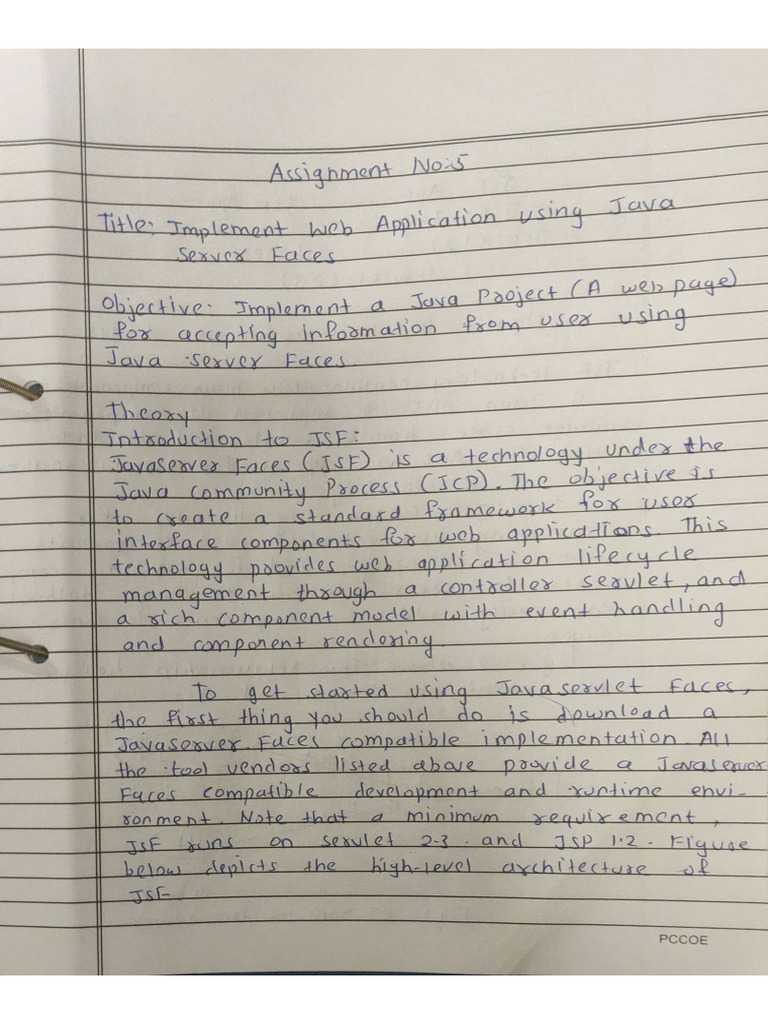 Assignment No:5
Title: Implement Web Application using Java
Server Faces
Objective: Implement a Java Project (A web page)
for accepting Information from user using
Java server Faces.
Theory
Introduction to JSF:
Javaserver Faces (JSF) is a technology under the
Java Community Process (JCP). The objective is
to create a standard framework for user
interface components for web applications. This
technology provides web application lifecycle
management through a controller servlet, and
a rich component model with event handling
and component rendering.
To get started using Javaservlet Faces,
the first thing you should do is download a
Javaserver Faces compatible implementation. All
the tool vendors listed above provide a Javaserver
Faces compatible development and runtime envi-
ronment. Note that a minimum requirement,
JSF runs on servlet 2.3. and JSP 1.2. Figure
below depicts the high-level architecture of
JSF.
PCCOE